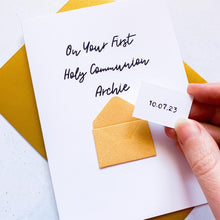 On Your First
Holy Communion
Archie
10.07.23